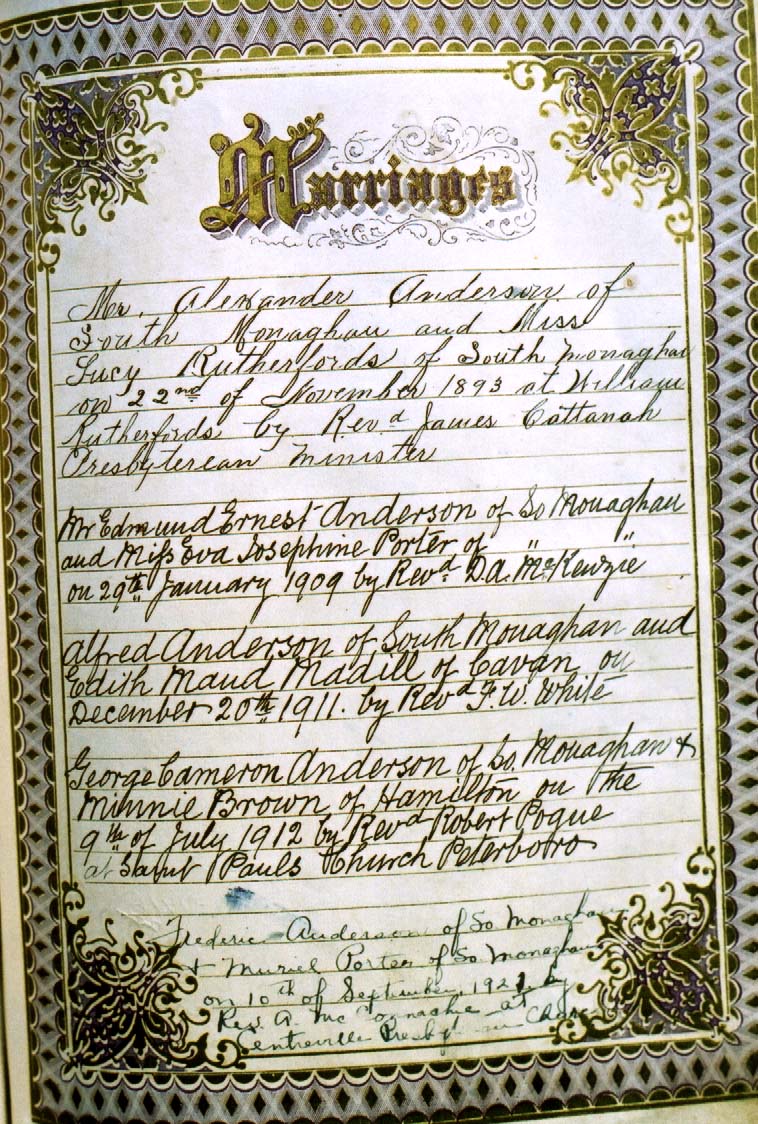 Marriages
Mr. Alexander Anderson of
South Monaghan and Miss
Lucy Rutherfords of South Monaghan
on 22nd of November 1893 at William
Rutherfords by Revd James Cattanah
Presbyterean Minister
Mr Edmund Ernest Anderson of So Monaghan
and Miss Eva Josephine Porter of " "
on 29th January 1909 by Revd D.A. McKenzie
Alfred Anderson of South Monaghan and
Edith Maud Madill of Cavan on
December 20th 1911. by Revd F.W. White
George Cameron Anderson of So. Monaghan &
Minnie Brown of Hamilton on the
9th of July 1912 by Revd Robert Pogue
at Saint Pauls Church Peterboro
Frederic Anderson of So Monaghan
& Muriel Porter of So Monaghan
on 10th of September, 1921 by
Rev. A. at
Centreville